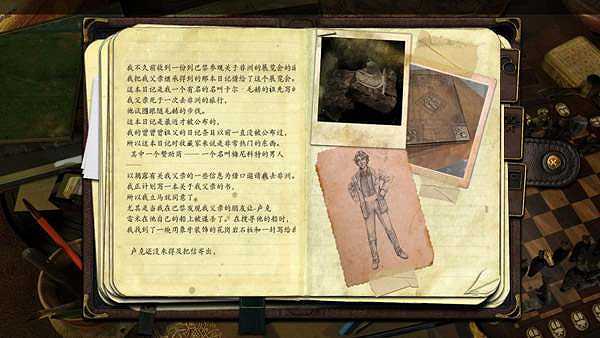 我不久前收到一份到巴黎参观关于非洲的展览会的
我把我父亲继承得到的那本日记借给了这个展览会。
这本日记是我一个有名的名叫卡尔·毛赫的祖先写
我父亲死于一次去非洲的旅行，
他试图跟随毛赫的步伐。
这本日记是最近才被公布的，
我的曾曾曾祖父的日记条目以前一直没被公布过，
所以这本日记对收藏家来说是非常热门的东西。
其中一个赞助商 —— 一个名叫梅尼科特的男人
以揭露有关我父亲的一些信息为借口邀请我去非洲。
我正计划写一本关于我父亲的书，
所以我立马就同意了。
尤其是当我在巴黎发现我父亲的朋友让·卢克
雷米在他自己的船上被谋杀了。在搜寻他的船时，
我找到了一块用象牙装饰的花岗岩石板和一封写给
卢克还没来得及把信寄出。